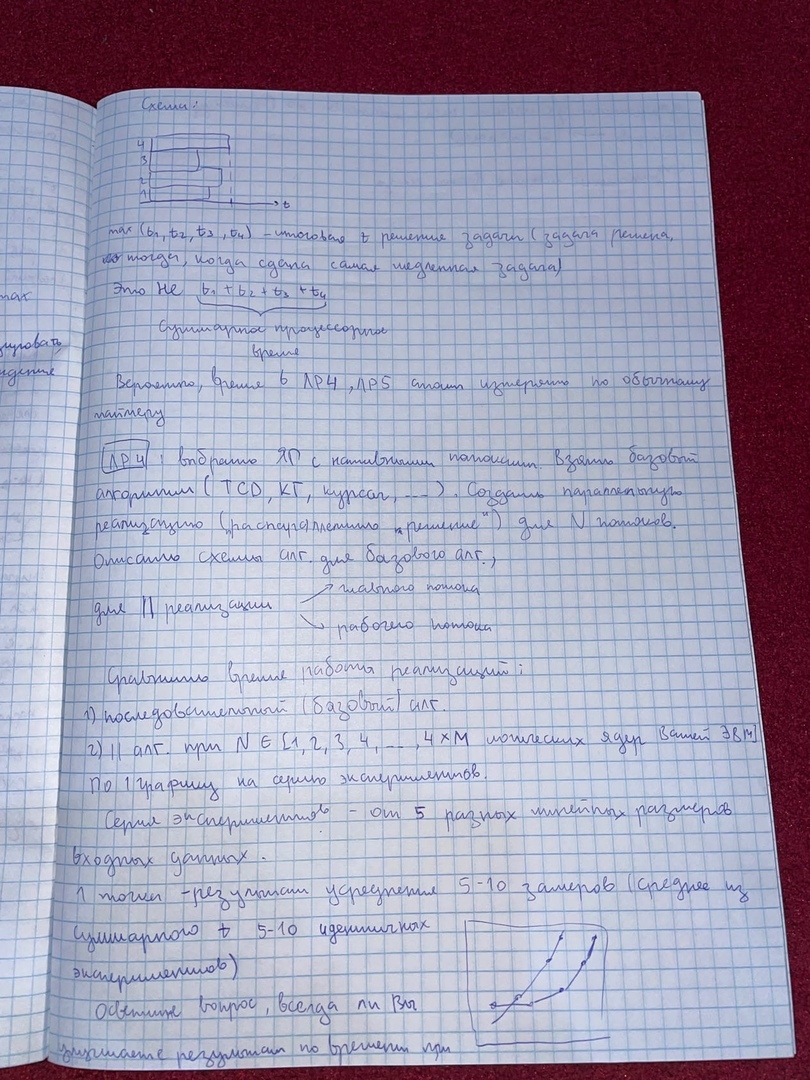 тах
Схема:
4
3
2
1
t
max (t1, t2, t3, t4) – итоговое t решение задачи (задача решена,
тогда, когда сдана самая медленная задача)
Это не t1 + t2 + t3 + t4
Суммарное процессорное
время
Вероятно, время в ЛР4, ЛР5 стоит измерять по обычному
таймеру
ЛР4: выбрать ЯП с нативными потоками. Взять базовый
алгоритм (TCD, КГ, курсач, ...). Создать параллельную
реализацию ("распараллелить решение") для N потоков.
Описать схемы алг. для базового алг.,
главного потока
для || реализации
рабочего потока
Сравнить время работы реализаций:
1) последовательный (базовый) алг.
2) || алг. при N ∈ [1, 2, 3, 4, ..., 4×M логических ядер Вашей ЭВМ]
По 1 графику на серию экспериментов.
Серия экспериментов – от 5 разных линейных размеров
входных данных.
1 точка – результат усреднения 5-10 замеров (среднее из
суммарного t 5-10 идентичных
экспериментов)
Осветите вопрос, всегда ли Вы
улучшаете результат по времени при